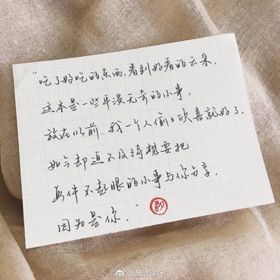 “吃了好吃的东西，看到好看的云朵，
这本是一些平淡无奇的小事，
放在以前，我一个人偷偷欣喜就好了，
如今却迫不及待想要把
每件不起眼的小事与你分享，
因为是你。”